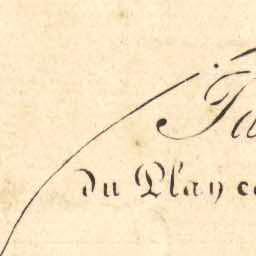 Ta
du Plan co